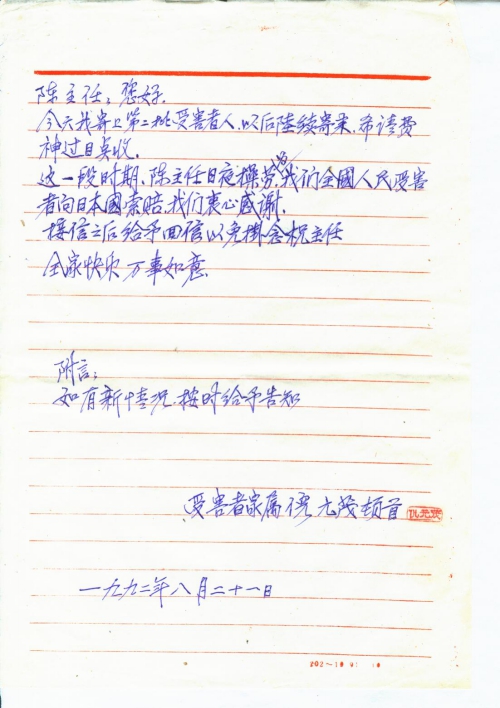 陈主任：您好.
今天我寄上第二批受害者人,以后陆续寄来,希请费
神过目点收.
这一段时期,陈主任日夜操劳,为我们全國人民受害
者向日本國索赔,我们衷心感谢.
接信之后给予回信以免掛念祝主任
全家快乐 万事如意.
附言：
如有新情况,按时给予告知
受害者家属 元茂顿首
一九九二年八月二十一日